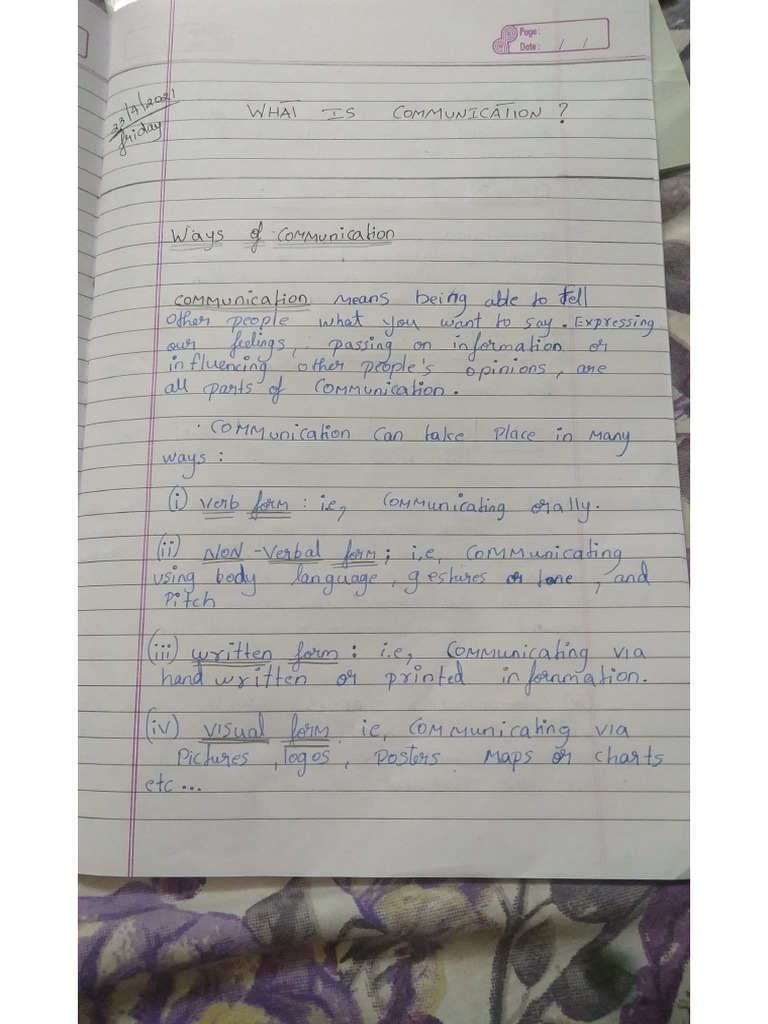 Page:
Date: / /
23/4/2021
friday
WHAT IS COMMUNICATION ?
Ways of Communication
Communication means being able to tell
other people what you want to say. Expressing
our feelings, passing on information or
influencing other people's opinions, are
all parts of communication.
. Communication can take place in many
ways :
(i) Verb form : i.e, communicating orally.
(ii) NON-Verbal form ; i,e, communicating
using body language, gestures or tone, and
Pitch
(iii) written form : i.e, communicating via
hand written or printed information.
(iv) visual form ie, communicating via
Pictures, logos, posters maps or charts
etc...